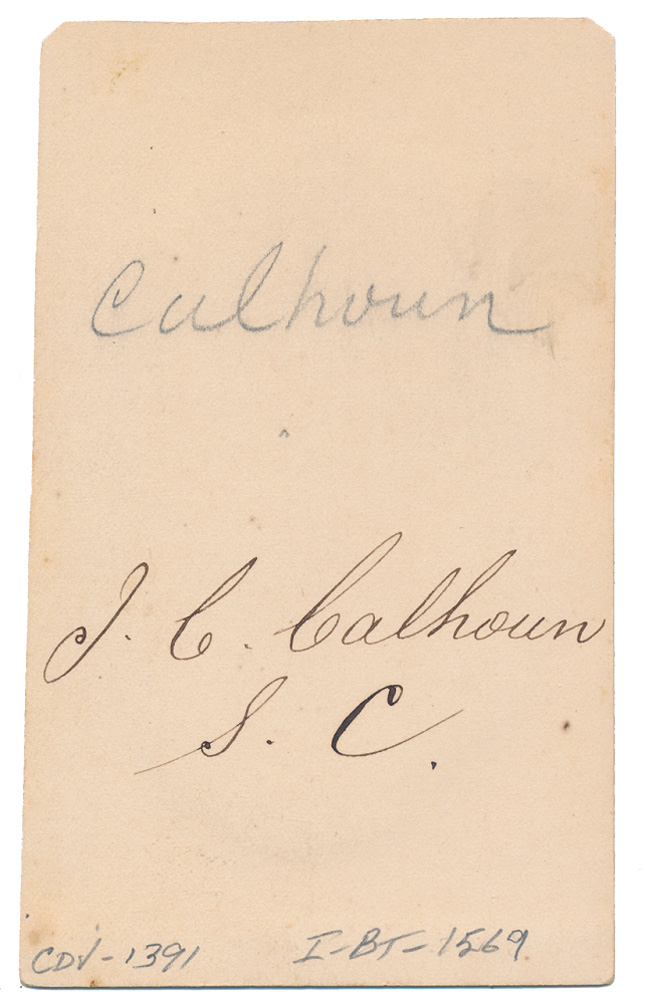 Calhoun
J. C. Calhoun
S. C.
CDV-1391 I-BT-1569